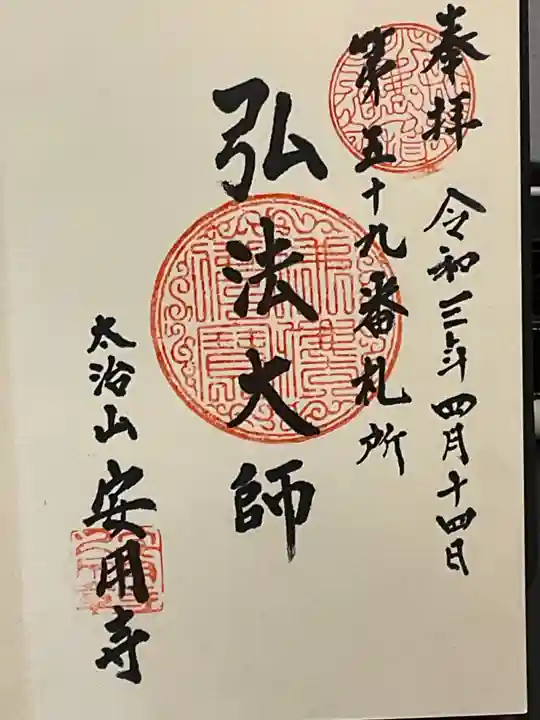 奉拝 令和三年四月十四日
第五十九番札所
弘法大師
太治山 安用寺